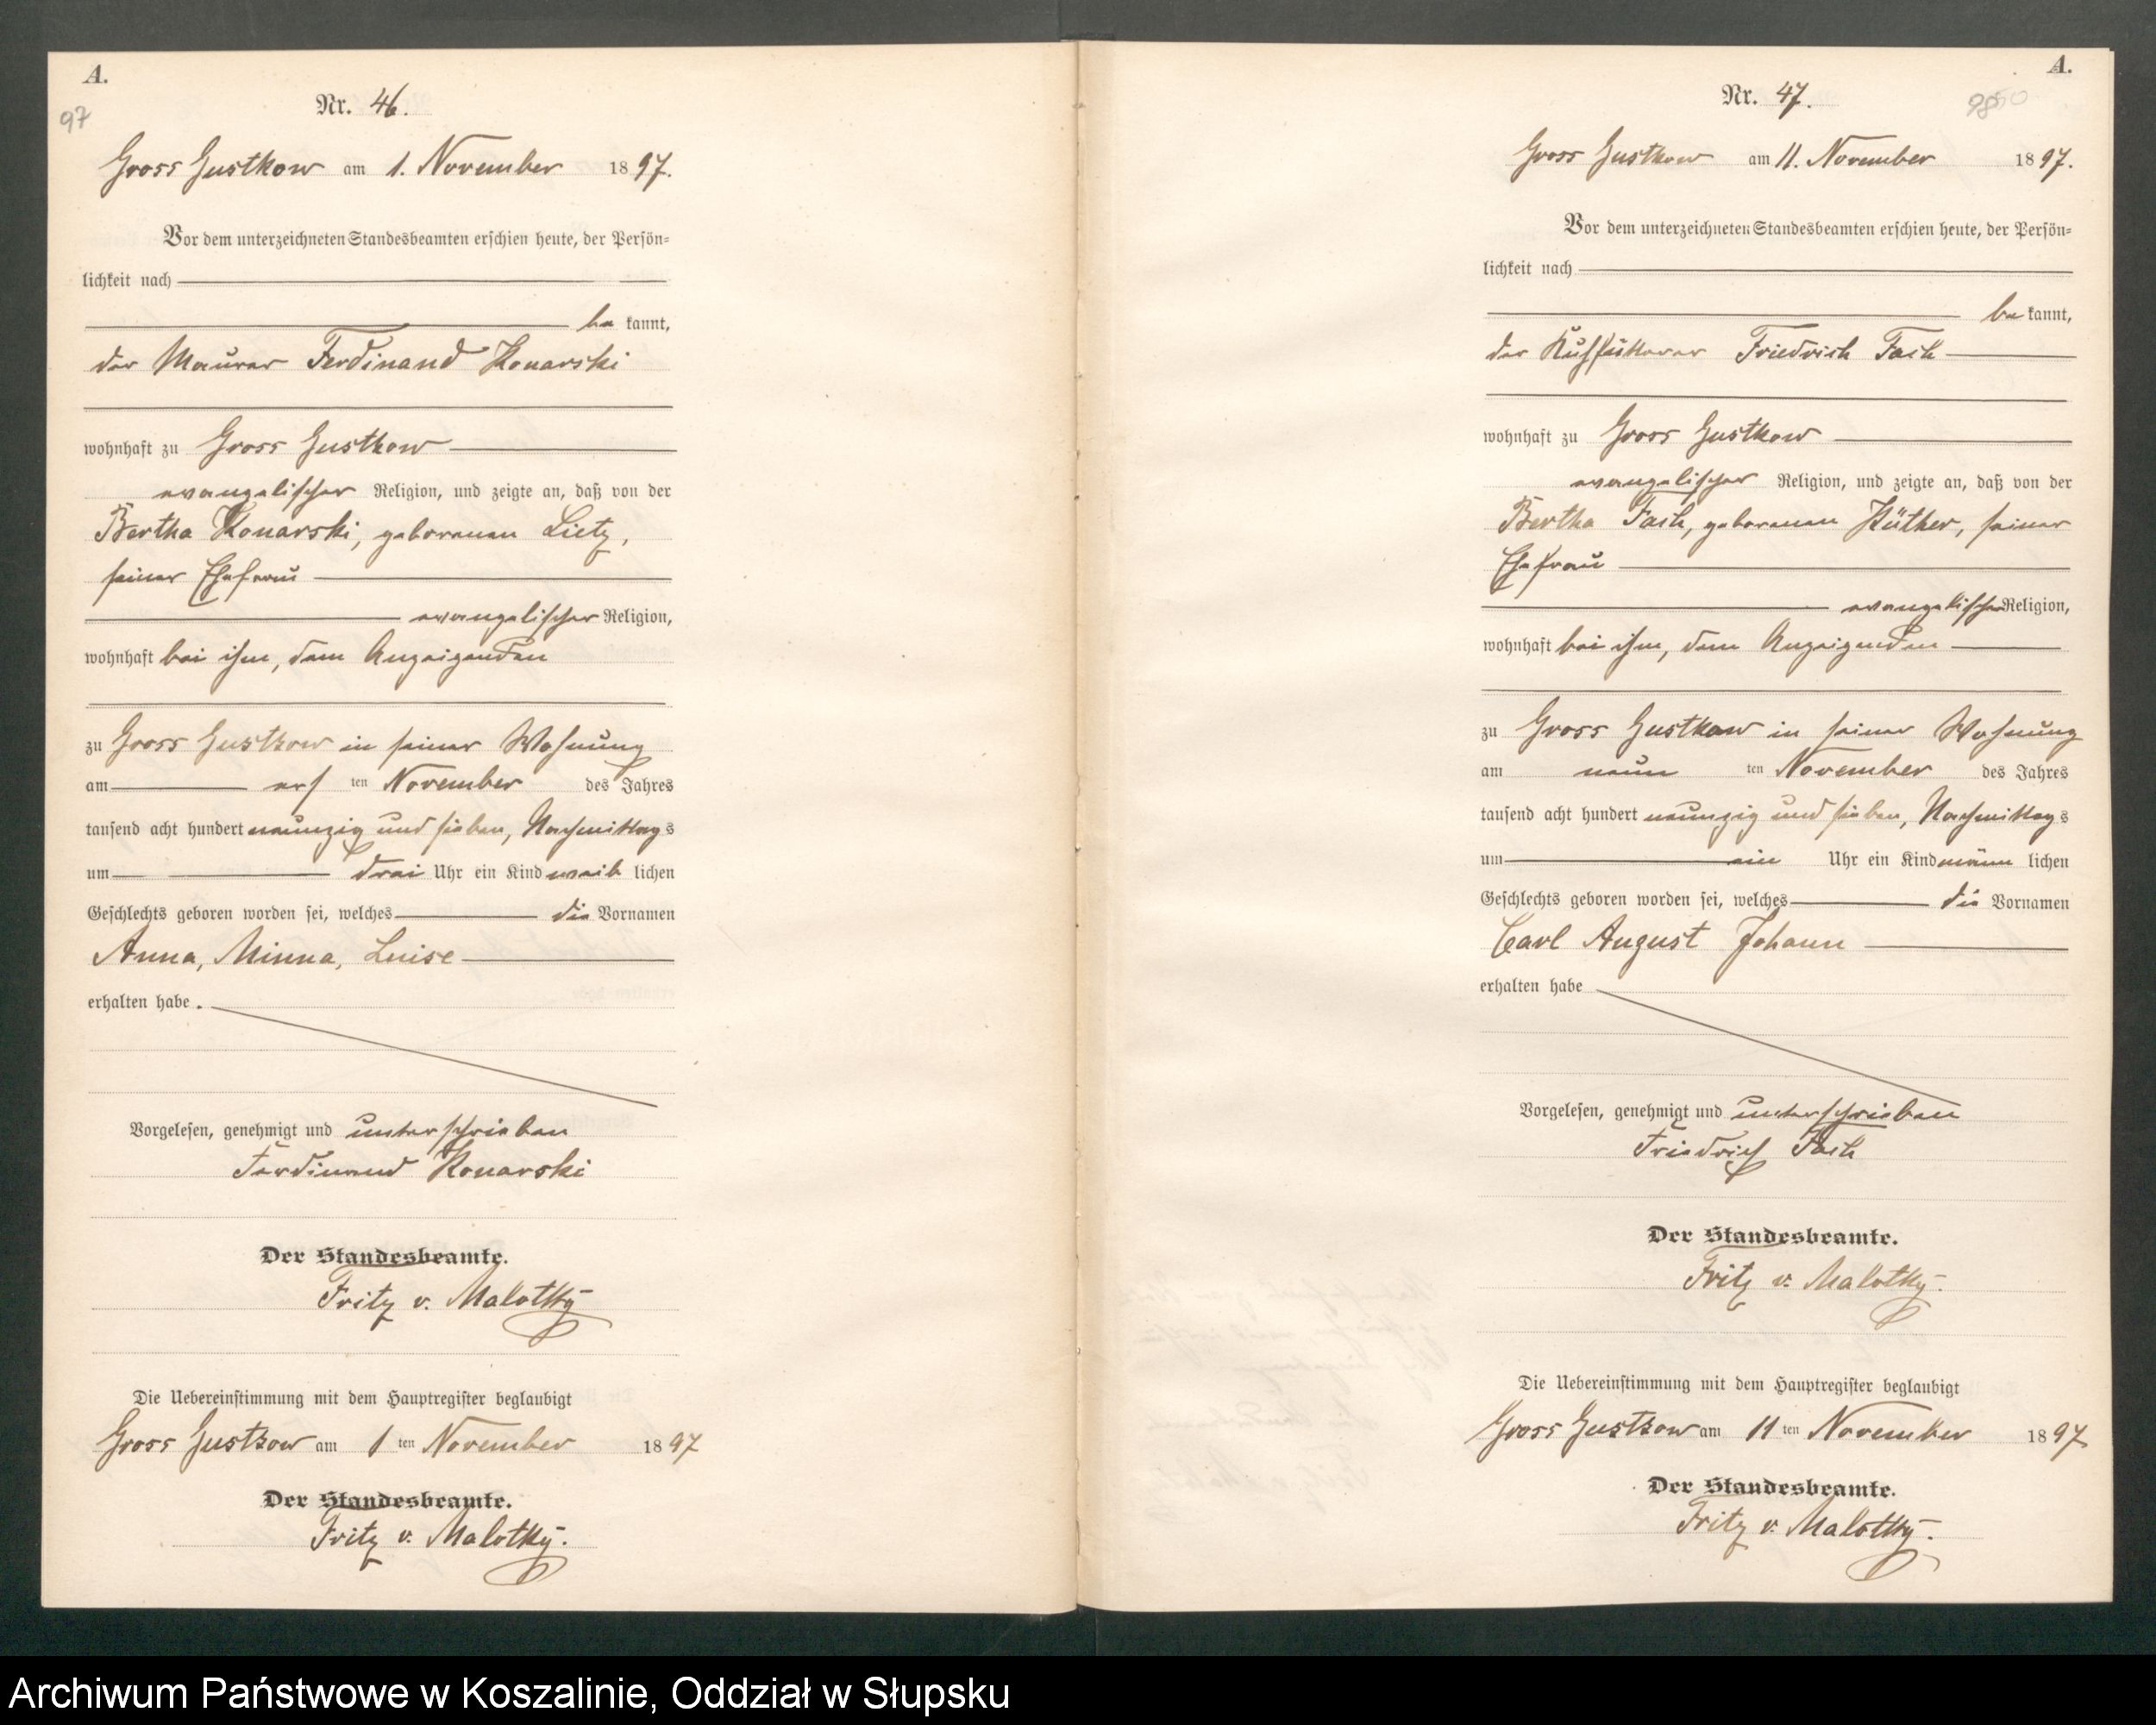 A.
97
Nr. 46.
Gross Gustkow am 1. November 1897.
Vor dem unterzeichneten Standesbeamten erschien heute, der Persön-
lichkeit nach
be kannt,
der Maurer Ferdinand Konarski
wohnhaft zu Gross Gustkow
evangelischer Religion, und zeigte an, daß von der
Bertha Konarski, geborenen Lietz,
seiner Ehefrau
evangelischer Religion,
wohnhaft bei ihm, dem Anzeigenden
zu Gross Gustkow in seiner Wohnung
am ers ten November des Jahres
tausend acht hundert neunzig und sieben, Nachmittags
um drei Uhr ein Kind weib lichen
Geschlechts geboren worden sei, welches die Vornamen
Anna, Minna, Luise
erhalten habe.
Vorgelesen, genehmigt und unterschrieben
Ferdinand Konarski
Der Standesbeamte.
Fritz v. Malotky
Die Uebereinstimmung mit dem Hauptregister beglaubigt
Gross Gustkow am 1 ten November 1897
Der Standesbeamte.
Fritz v. Malotky.
A.
Nr. 47.
Gross Gustkow am 11. November 1897.
Vor dem unterzeichneten Standesbeamten erschien heute, der Persön-
lichkeit nach
be kannt,
der Kuhfütterer Friedrich Fach
wohnhaft zu Gross Gustkow
evangelischer Religion, und zeigte an, daß von der
Bertha geborenen Küther, seiner
Ehefrau
evangelischer Religion,
wohnhaft bei ihm, dem Anzeigenden
zu Gross Gustkow in seiner Wohnung
am neun ten November des Jahres
tausend acht hundert neunzig und sieben, Nachmittags
um ein Uhr ein Kind männ lichen
Geschlechts geboren worden sei, welches die Vornamen
Carl August Johann
erhalten habe
Vorgelesen, genehmigt und unterschrieben
Friedrich
Der Standesbeamte.
Fritz v. Malotky.
Die Uebereinstimmung mit dem Hauptregister beglaubigt
Gross Gustkow am 11 ten November 1897
Der Standesbeamte.
Fritz v. Malotky.
Archiwum Państwowe w Koszalinie, Oddział w Słupsku